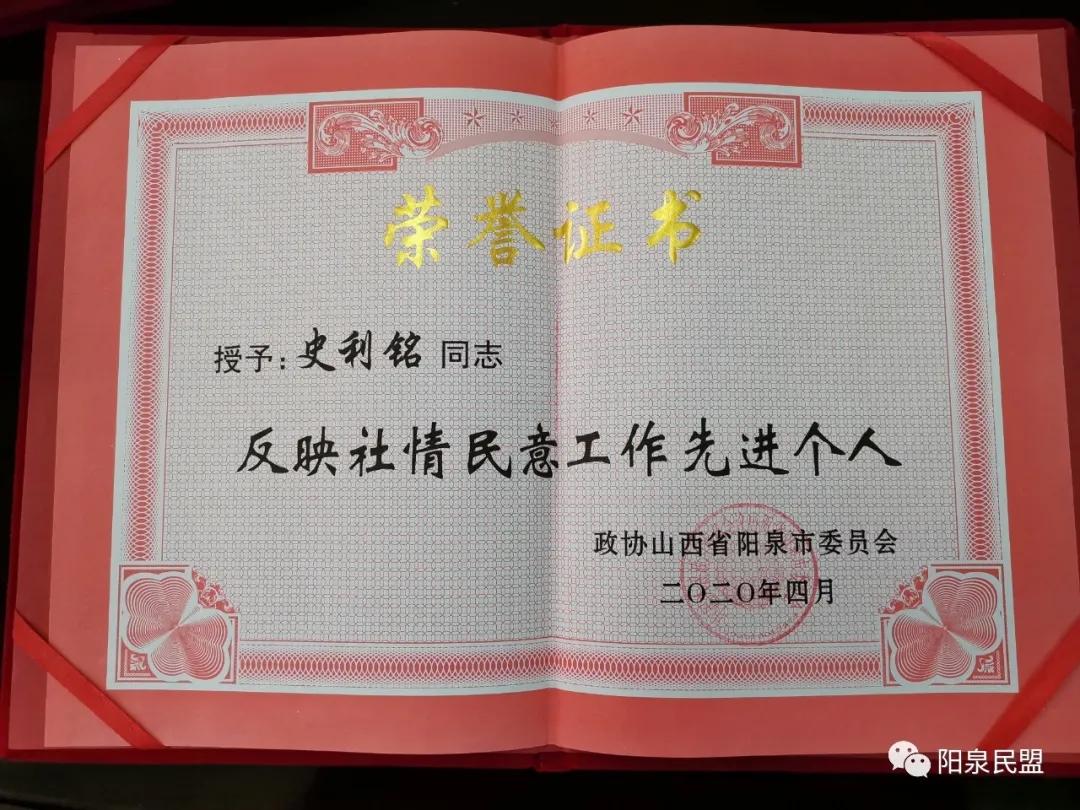 荣誉证书
授予:史利铭 同志
反映社情民意工作先进个人
政协山西省阳泉市委员会
二〇二〇年四月
阳泉民盟